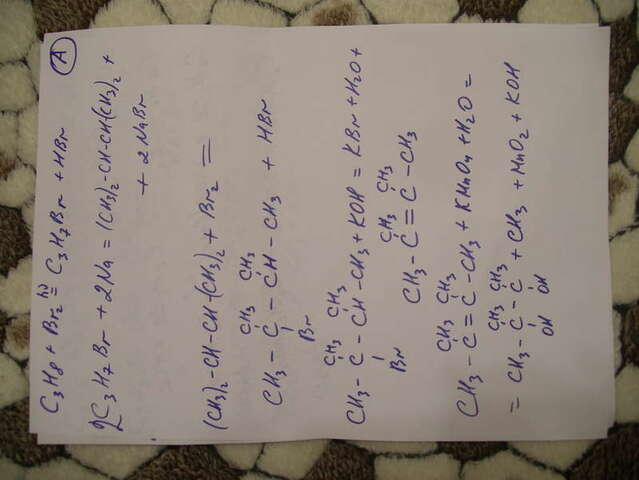 A
C3H8 + Br2 hν = C3H7Br + HBr
2C3H7Br + 2Na = (CH3)2-CH-CH(CH3)2 +
+ 2NaBr
(CH3)2-CH-CH-(CH3)2 + Br2 =
CH3 CH3
CH3 - C - CH - CH3 + HBr
Br
CH3 CH3
CH3 - C - CH - CH3 + KOH = KBr + H2O +
Br
CH3 CH3
CH3 - C = C - CH3
CH3 CH3
CH3 - C = C - CH3 + KMnO4 + H2O =
CH3 CH3
= CH3 - C - C + CH3 + MnO2 + KOH
OH OH